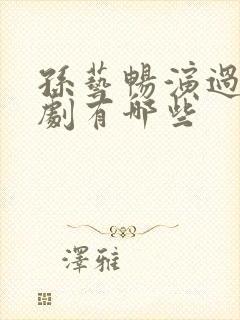 孫藝暢演過
劇有哪些
澤雅